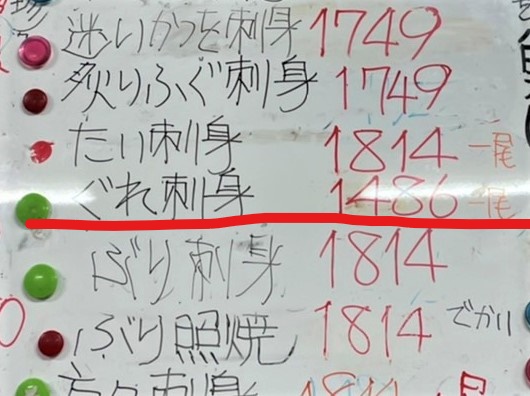 迷いかつを刺身 1749
炙りふぐ刺身 1749
たい刺身 1814 一尾
ぐれ刺身 1486 一尾
ぶり刺身 1814
ぶり照焼 1814 でかい